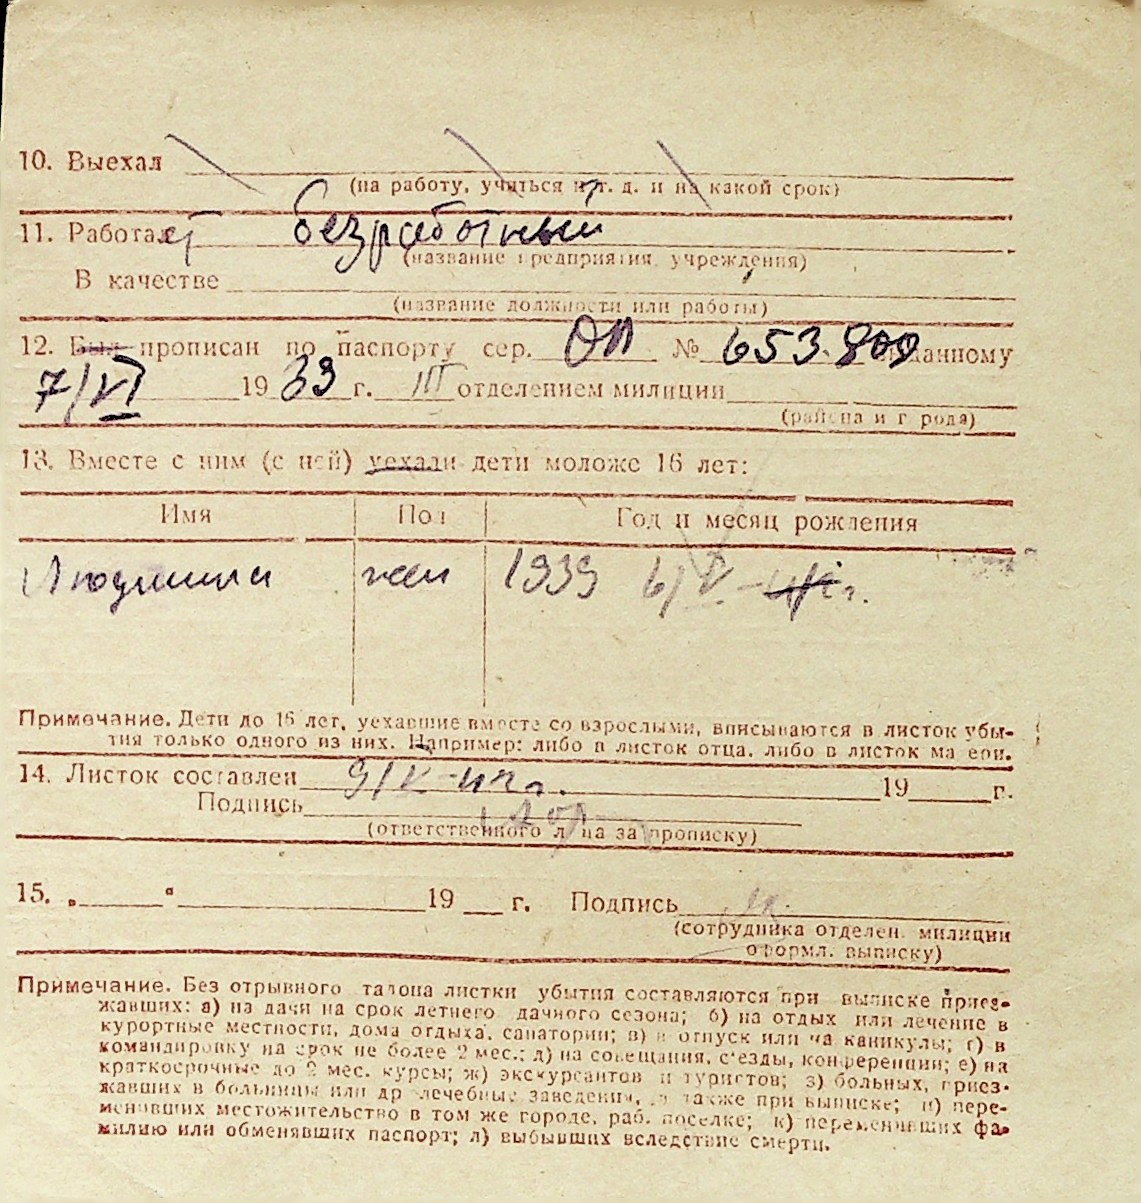 10. Выехал
(на работу, учиться и т. д. и на какой срок)
11. Работает безработный
(название предприятия, учреждения)
В качестве
(название должности или работы)
12. Был прописан по паспорту сер. ОП № 653.809 выданному
7/VI 1939 г. III отделением милиции
(района и города)
13. Вместе с ним (с ней) уехали дети моложе 16 лет:
Имя Пол Год и месяц рождения
Людмила жен 1939 6/V
Примечание. Дети до 16 лет, уехавшие вместе со взрослыми, вписываются в листок убы-
тия только одного из них. Например: либо в листок отца, либо в листок матери.
14. Листок составлен 9/V 19 г.
Подпись
(ответственного лица за прописку)
15. „ “ 19 г. Подпись
(сотрудника отделен. милиции
оформл. выписку)
Примечание. Без отрывного талона листки убытия составляются при выписке приез-
жавших: а) на дачи на срок летнего дачного сезона; б) на отдых или лечение в
курортные местности, дома отдыха, санатории; в) в отпуск или на каникулы; г) в
командировку на срок не более 2 мес.; д) на совещания, с'езды, конференции; е) на
краткосрочные до 2 мес. курсы; ж) экскурсантов и туристов; з) больных, приез-
жавших в больницы или др лечебные заведения, а также при выписке; и) пере-
менивших местожительство в том же городе, раб. поселке; к) переменивших фа-
милию или обменявших паспорт; л) выбывших вследствие смерти.